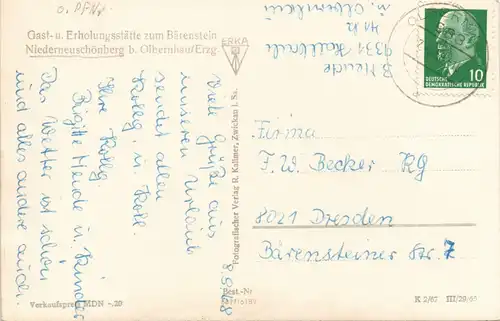 Gast- u. Erholungsstätte zum Bärenstein
Niederneuschönberg b. Olbernhau/Erzg.
ERKA
B. Heude
9331
u. Olbernhau
DEUTSCHE
DEMOKRATISCHE REPUBLIK
10
8.9.68
Viele Grüße aus
unseren Urlaub
sendet allen
Kolleg. u. Koll.
Ihre Kolleg
Brigitte Heude u. Kinder
Das Wetter ist schön
und alles andere auch.
Fotografischer Verlag R. Kallmer, Zwickau i. Sa.
Firma
F. W. Becker KG
8021 Dresden
Bärensteiner Str. 7
Best.-Nr
Verkaufspreis MDN -,20
K 2/67 III/29/65